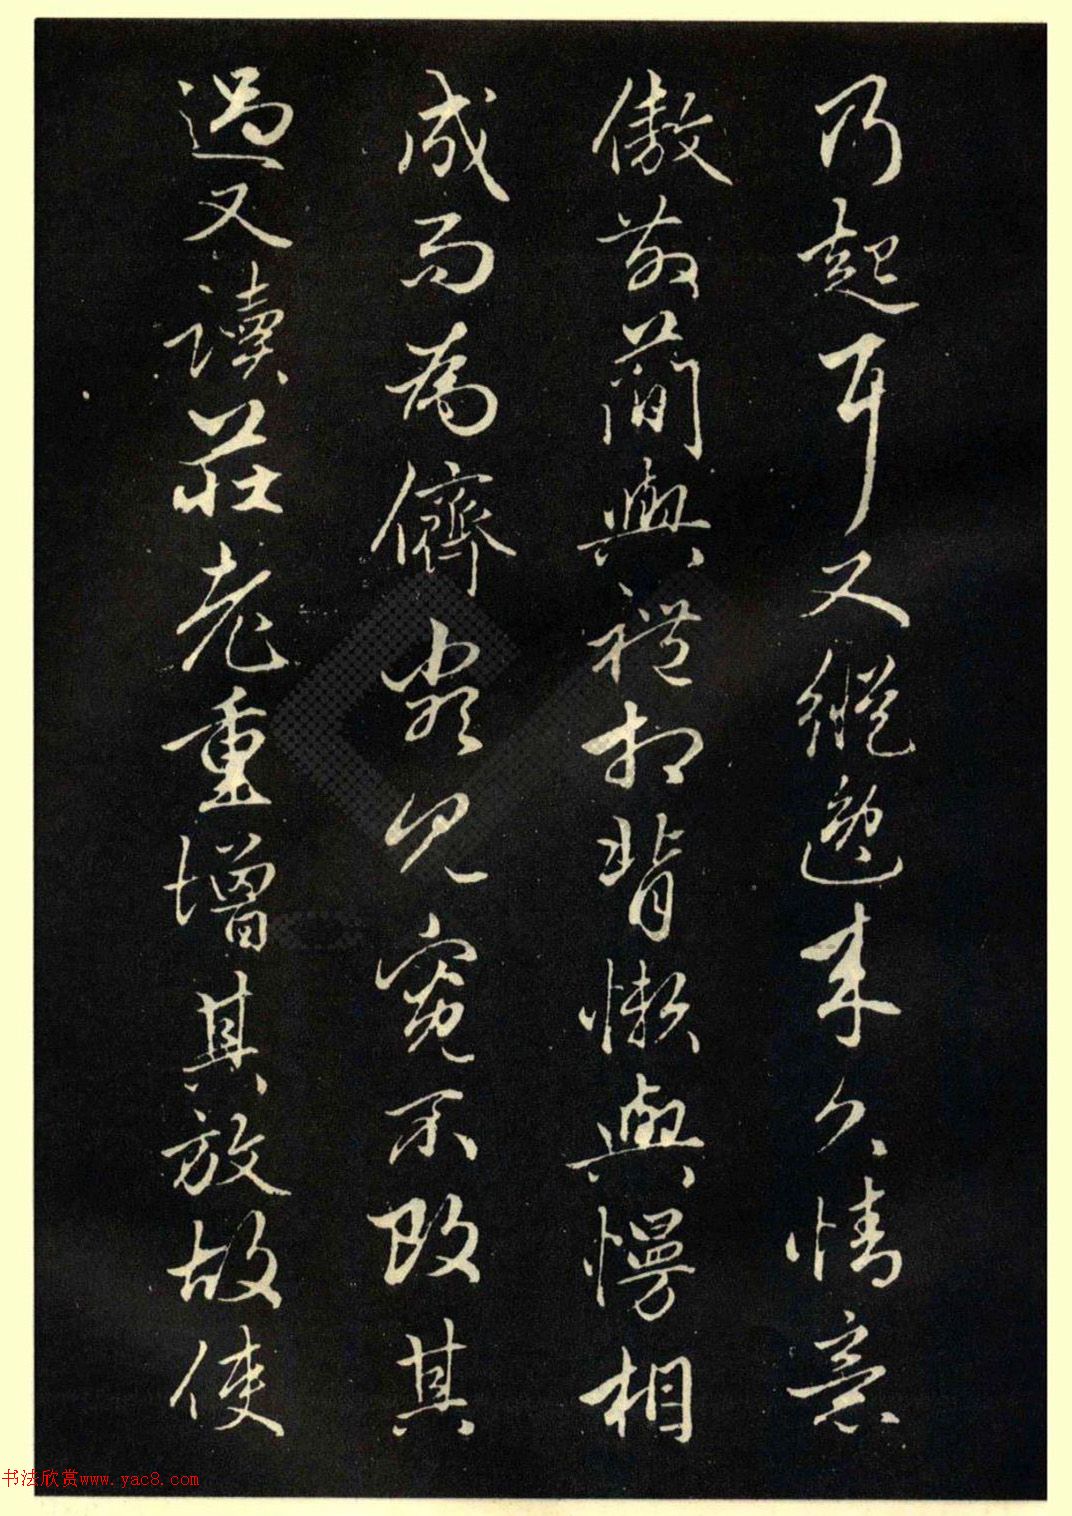 乃起耳又縱逸来久情意
傲散蕳與禮相背懒與慢相
成而為儕类見寛不改其
過又讀莊老重增其放故使
书法欣赏www.yac8.com